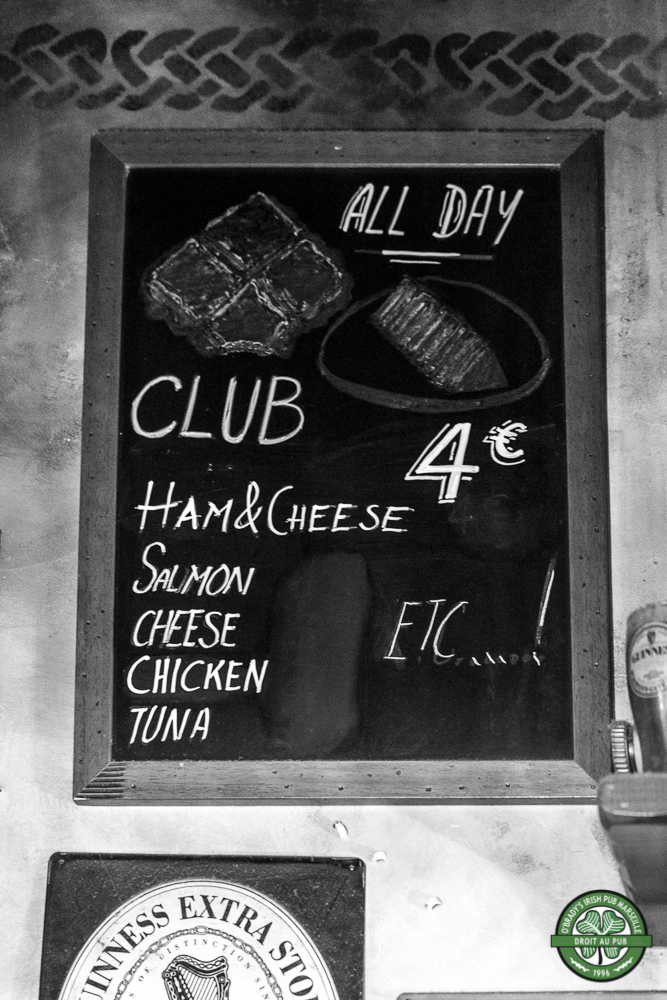 ALL DAY
CLUB
4€
HAM & CHEESE
SALMON
CHEESE
CHICKEN
TUNA
ETC...!
GUINNESS
GUINNESS EXTRA STOUT
O'BRADY'S IRISH PUB MARSEILLE
DROIT AU PUB
1996